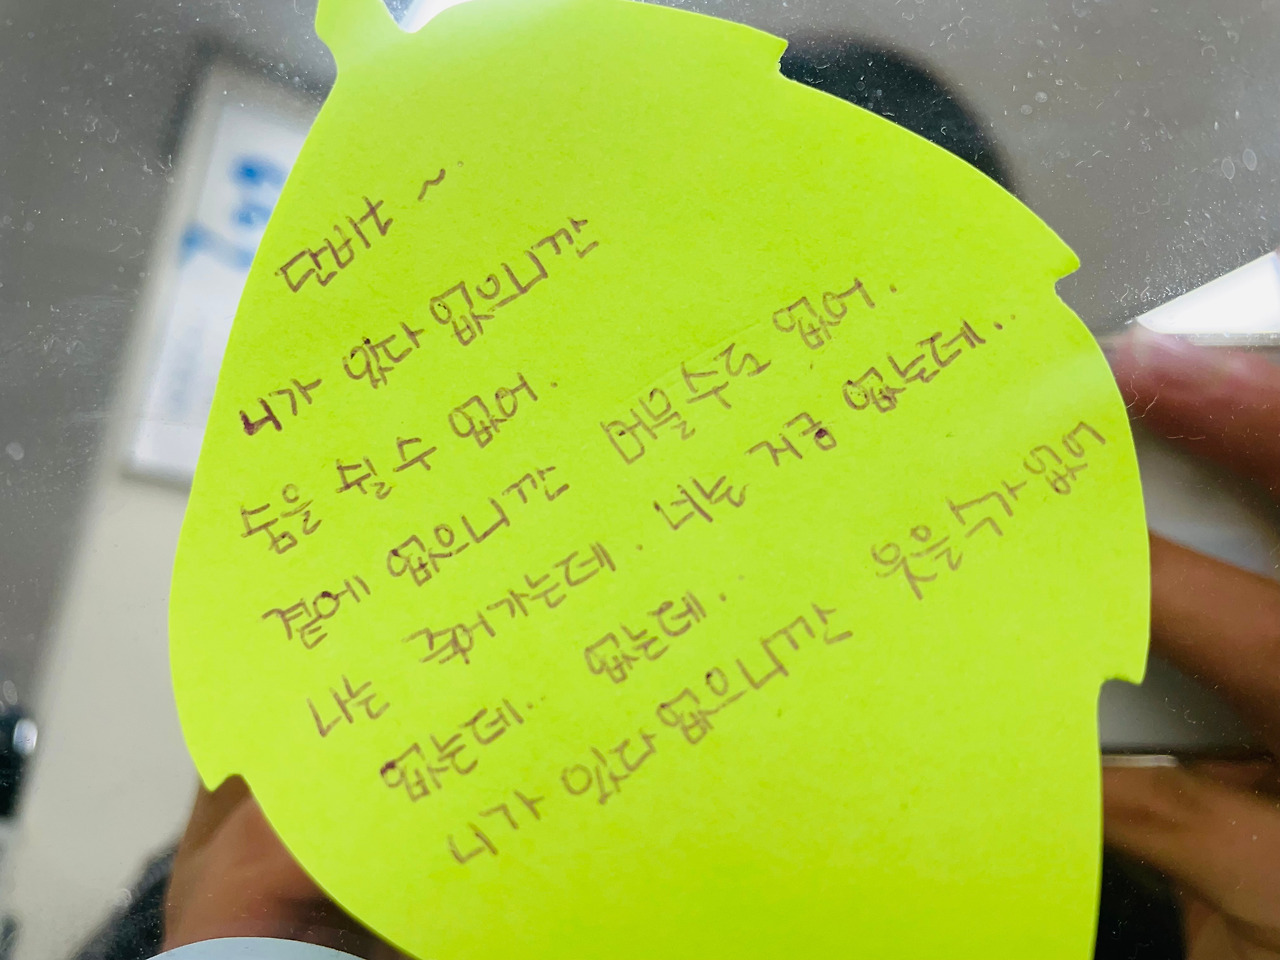 단비t ~
니가 있다 없으니깐
숨을 쉴 수 없어.
곁에 없으니깐 머물 수도 없어.
나는 죽어가는데. 너는 지금 없는데..
없는데.. 없는데.
니가 있다 없으니깐 웃을 수가 없어